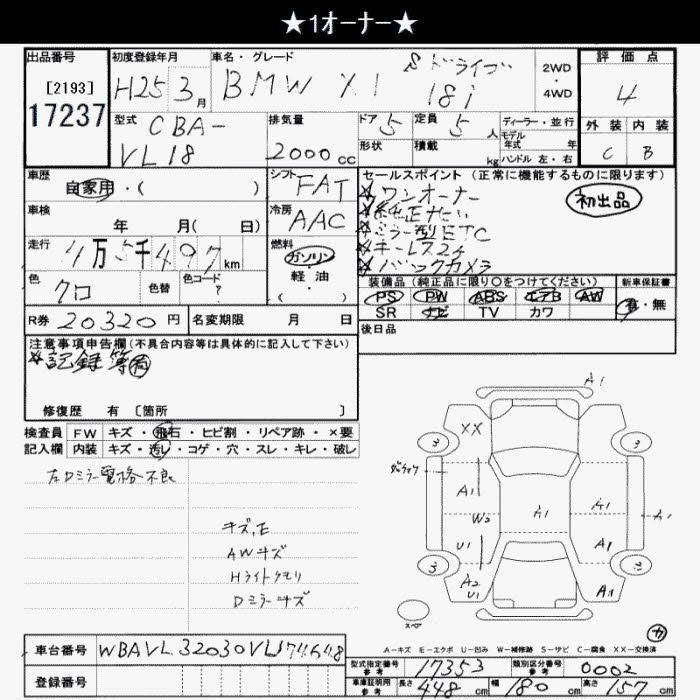 ★1オーナー★
出品番号 初度登録年月 車名・グレード 評価点
[2193] H25 3月 BMW X1 S ドライブ 18i 2WD・4WD 4
17237 型式 CBA-VL18 排気量 2000cc ドア 5 定員 5人 ディーラー・並行 外装 内装
形状 積載 kg モデル年式 年 ハンドル 左・右 C B
車歴 自家用・( ) シフト FAT セールスポイント(正常に機能するものに限ります)
☆ワンオーナー 初出品
車検 年 月( 日) 冷房 AAC ☆純正ナビ
☆ミラー型ETC
走行 4万5千497km 燃料 ガソリン・軽油・( ) ☆キーレス2ケ
☆バックカメラ
色 クロ 色替 色コード ? 装備品(純正品に限り○をつけてください) 新車保証書
PS PW ABS エアB AW 有・無
R券 20320円 名変期限 月 日 SR ナビ TV カワ
注意事項申告欄(不具合内容等は具体的に記入して下さい) 後日品
☆記録簿有
修復歴 有 〔箇所 〕
検査員 FW キズ・飛石・ヒビ割・リペア跡・×要
記入欄 内装 キズ・汚レ・コゲ・穴・スレ・キレ・破レ
左Dミラー電格不良
キズ,E
AWキズ
Hライトクモリ
Dミラーキズ
A1
XX
3 3
A1 A1 A1 A1
W2
U1 A1
3 3
A2 U1 A1
スペア
A-キズ E-エクボ U-凹み W-補修跡 S-サビ C-腐食 XX-交換済
車台番号 WBAVL32030VL174648
登録番号
型式指定番号 参考 17353 類別区分番号 参考 0002
車庫証明用 参考 長さ 448cm 幅 180cm 高さ 157cm